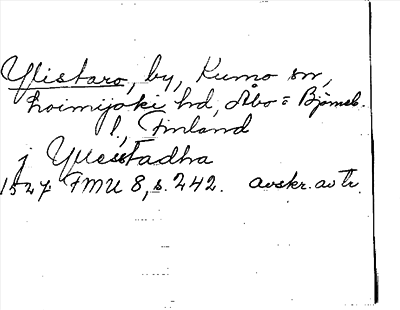 Ylistaro, by, Kumo sn,
Loimijoki hd, Åbo = Björneb.
l, Finland
j Yllesstadha
1527 FMU 8, s. 242. avskr. av Tr.